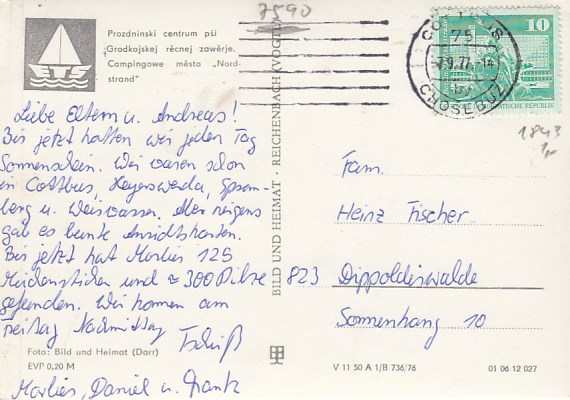 Prozdninski centrum pśi
Grodkojskej rěcnej zawěrje.
Campingowe město „Nord-
strand“
ETS
7590
COTTBUS
75
-7.9.77-14
CHOŚEBUZ
10
DEUTSCHE DEMOKRATISCHE REPUBLIK
1843
Liebe Eltern u. Andreas!
Bis jetzt hatten wir jeden Tag
Sonnenschein. Wir waren schon
in Cottbus, Hoyerswerda, Sprem-
berg u. Weisswasser. Aber nirgens
gab es bunte Ansichtskarten.
Bis jetzt hat Marlies 125
und ≈ 300 Pilze
gefunden. Wir kommen am
Freitag Nachmittag
Tschüß
Marlies, Daniel u. Frank
Foto: Bild und Heimat (Darr)
EVP 0,20 M
BILD UND HEIMAT · REICHENBACH (VOGTL)
Fam.
Heinz Fischer
823 Dippoldiswalde
Sonnenhang 10
V 11 50 A 1/B 736/76
01 06 12 027